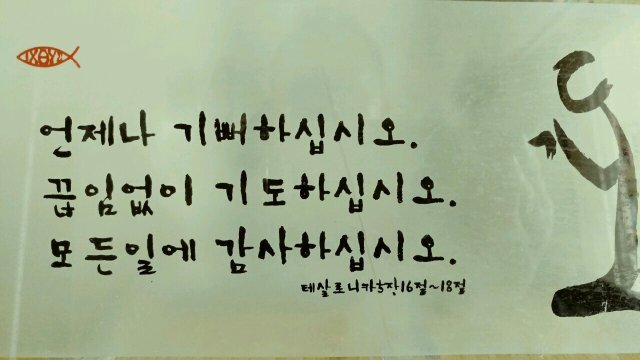 ΙΧΘΥΣ
언제나 기뻐하십시오.
끊임없이 기도하십시오.
모든일에 감사하십시오.
테살로니카5장16절~18절